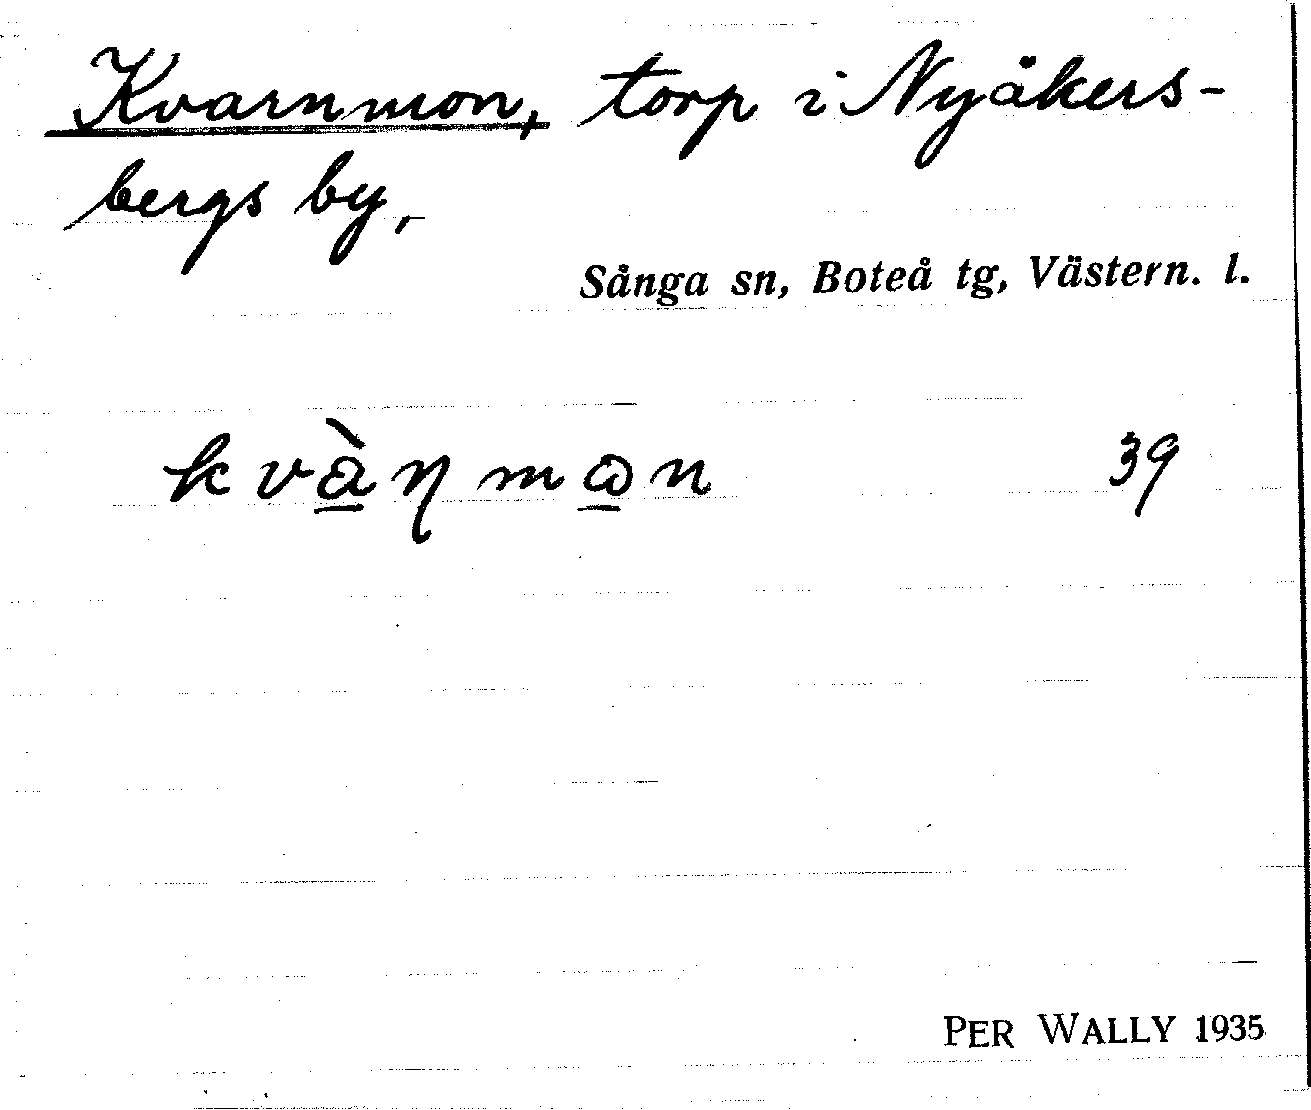 Kvarnmon, torp i Nyåkers-
bergs by,
Sånga sn, Boteå tg, Västern. l.
kvą̀ɳmω̱n 39
PER WALLY 1935